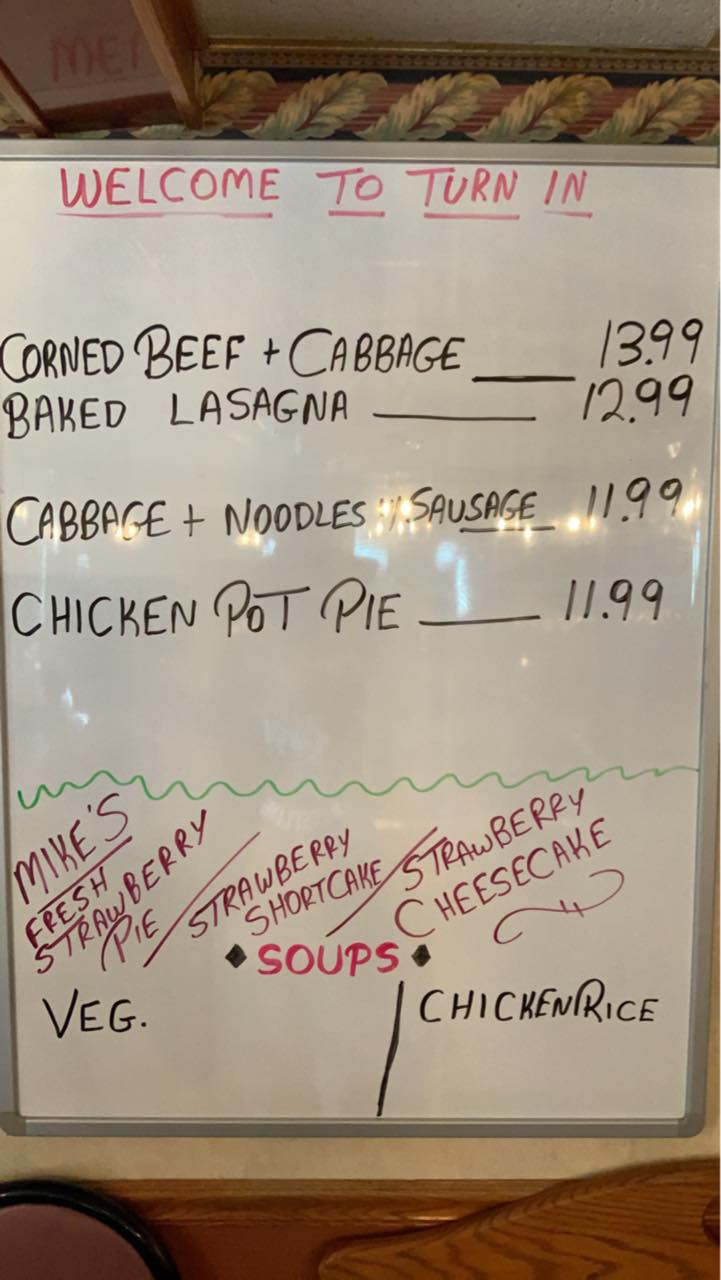 WELCOME TO TURN IN
CORNED BEEF + CABBAGE ___ 13.99
BAKED LASAGNA ___ 12.99
CABBAGE + NOODLES W. SAUSAGE 11.99
CHICKEN POT PIE ___ 11.99
MIKE'S
FRESH
STRAWBERRY
PIE /
STRAWBERRY
SHORTCAKE /
STRAWBERRY
CHEESECAKE
◆ SOUPS ◆
VEG. / CHICKEN RICE